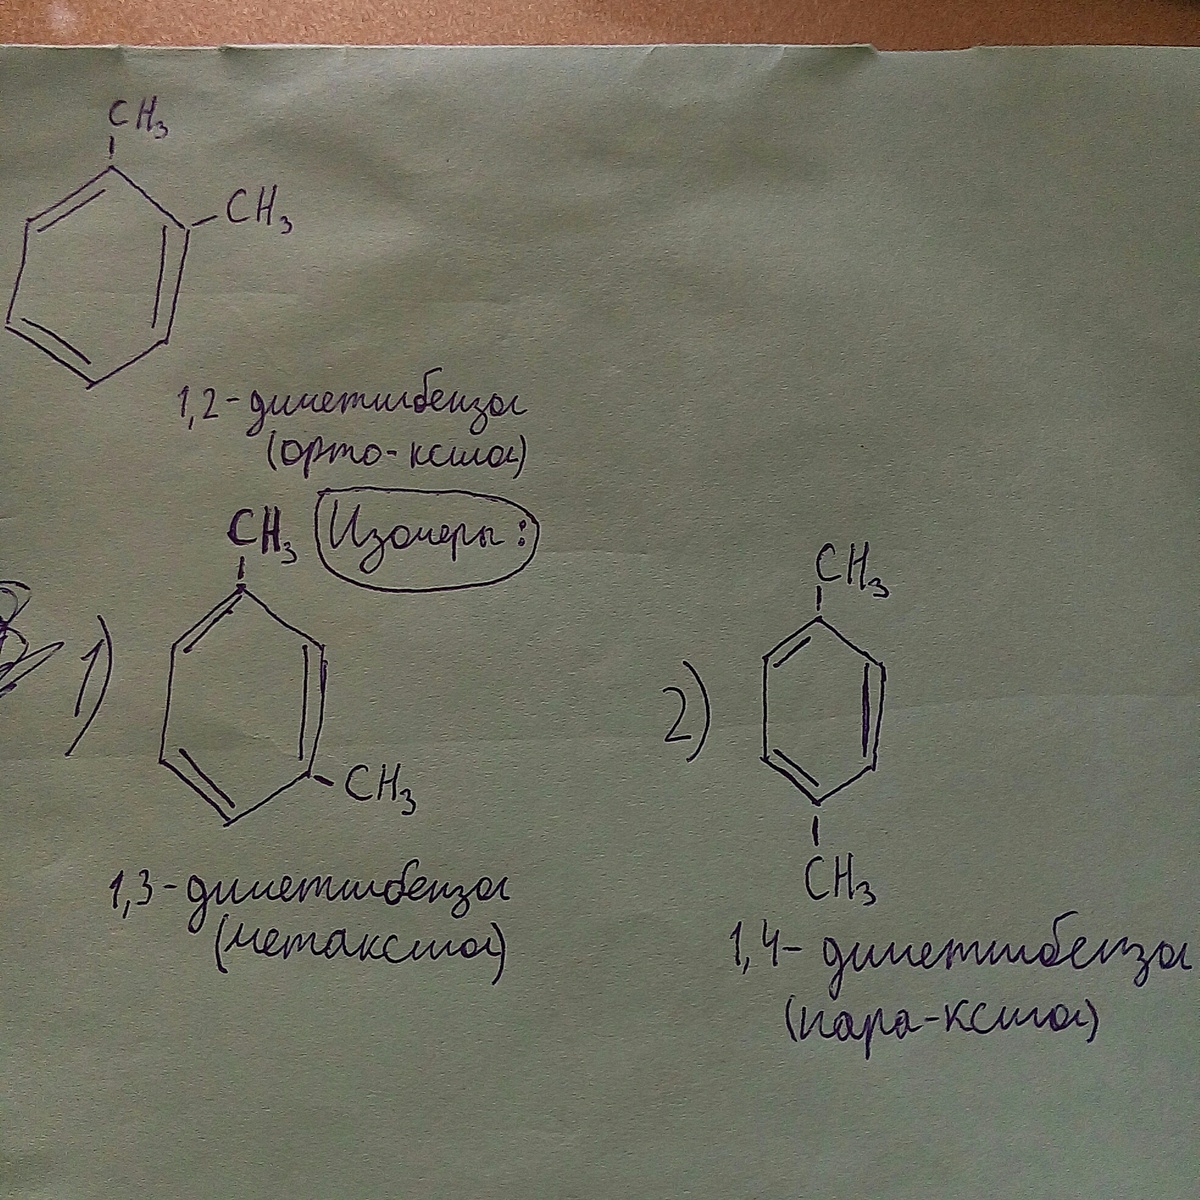 CH3
CH3
1,2-диметилбензол
(орто-ксилол)
Изомеры:
CH3
1)
CH3
1,3-диметилбензол
(метаксилол)
CH3
2)
CH3
1,4-диметилбензол
(пара-ксилол)